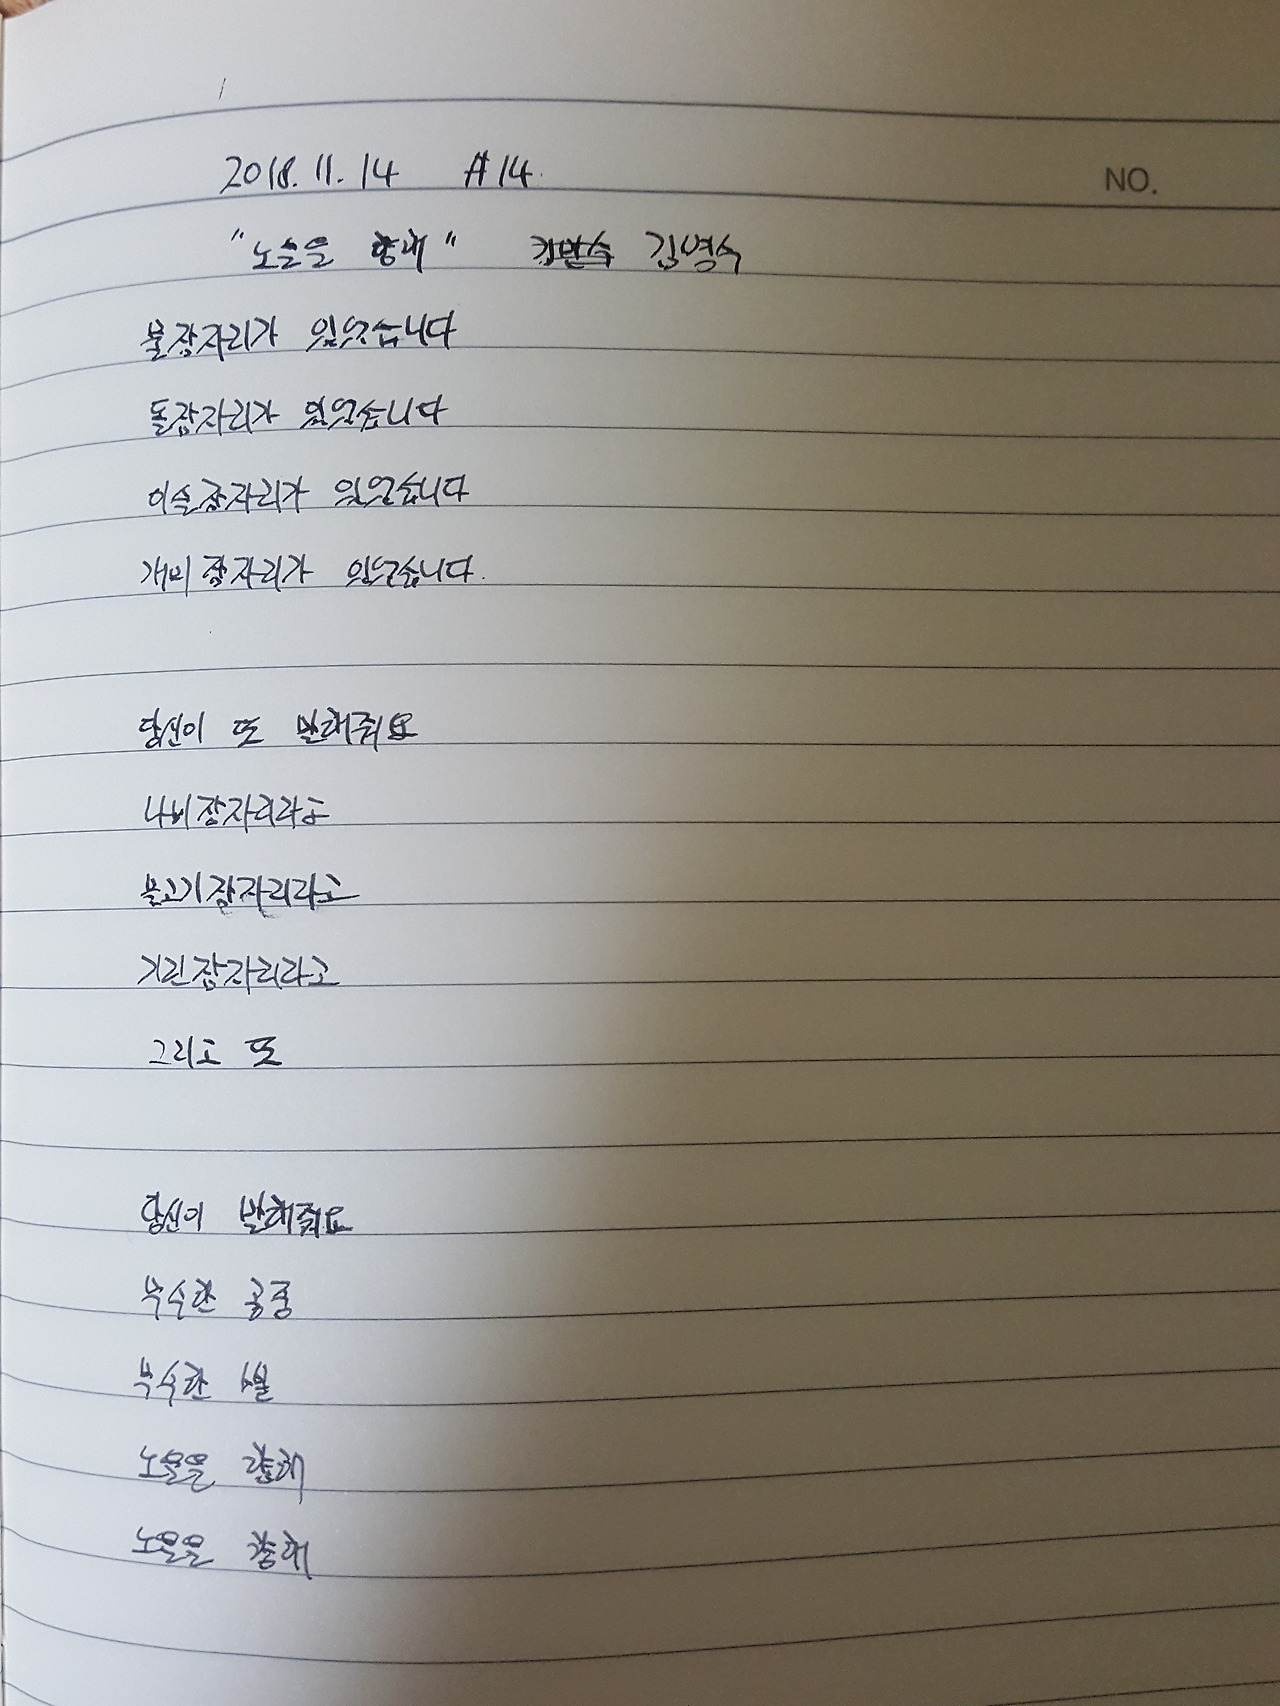 2018. 11. 14 #14.
NO.
"노을을 향해" 김병숙
물잠자리가 있었습니다
돌잠자리가 있었습니다
이슬잠자리가 있었습니다
개미잠자리가 있었습니다.
당신이 또 말해줘요
나비잠자리라고
물고기잠자리라고
기린잠자리라고
그리고 또
당신이 말해줘요
무수한 공중
무수한
노을을 향해
노을을 향해